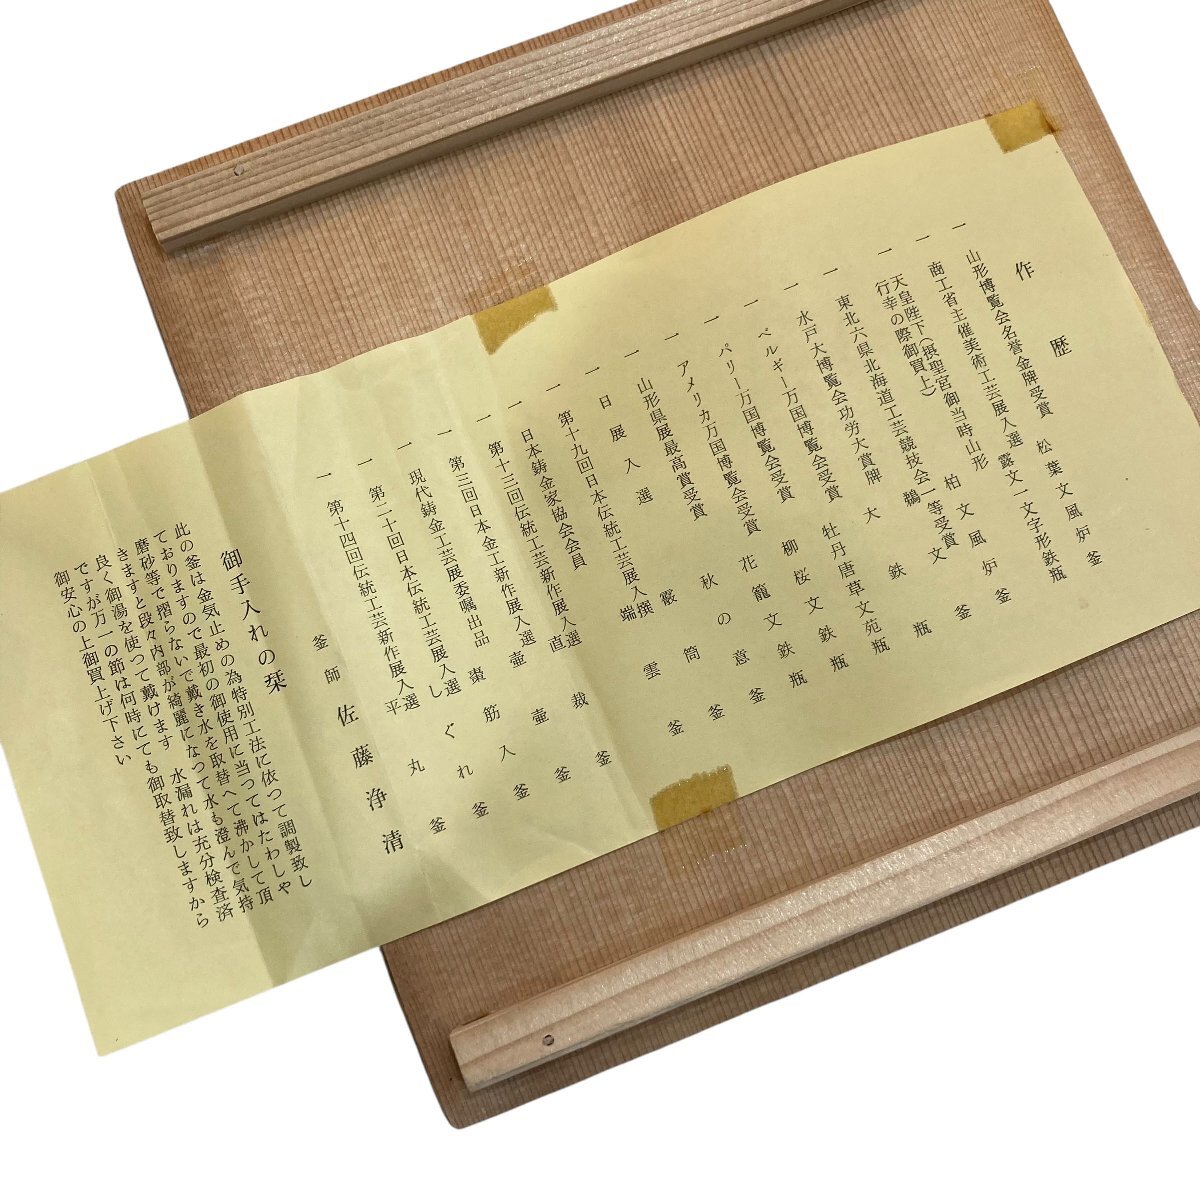 作歴
一 山形博覧会名誉金牌受賞 松葉文風炉釜
一 商工省主催美術工芸展入選 露文一文字形鉄瓶
一 天皇陛下(摂聖宮御当時山形
行幸の際御買上) 柏文風炉釜
一 東北六県北海道工芸競技会一等受賞 鶴文釜
一 水戸大博覧会功労大賞牌 大鉄瓶
一 ベルギー万国博覧会受賞 牡丹唐草文苑瓶
一 パリー万国博覧会受賞 柳桜文鉄瓶
一 アメリカ万国博覧会受賞 花籠文鉄瓶
一 山形県展最高賞受賞 秋の意釜
一 日展入選 筒釜
一 第十九回日本伝統工芸展入撰 端雲釜
一 日本鋳金家協会会員
一 第十三回伝統工芸新作展入選 直裁釜
一 第三回日本金工新作展入選 壷釜
一 現代鋳金工芸展委嘱出品 棗筋入釜
一 第二十回日本伝統工芸展入選 しぐれ釜
一 第十四回伝統工芸新作展入選 平丸釜
釜師 佐藤浄清
御手入れの栞
此の釜は金気止めの為特別工法に依つて調製致し
ておりますので最初の御使用に当つてはたわしや
磨砂等で摺らないで戴き水を取替へて沸かして頂
きますと段々内部が綺麗になつて水も澄んで気持
良く御湯を使つて戴けます 水漏れは充分検査済
ですが万一の節は何時にても御取替致しますから
御安心の上御買上げ下さい